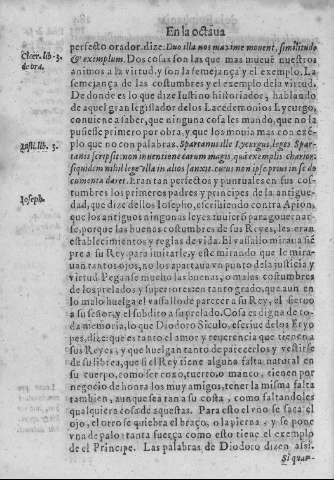 En la octaua
Cicer. lib. 3.
de ora.
perfecto orador, dize. Duo illa nos maxime mouent, similitudo
& exemplum. Dos cosas son las que mas mueuẽ nuestros
animos a la virtud, y son la semejança y el exemplo. La
semejança de las costumbres y el exemplo dela virtud,
De donde es lo que dize Iustino historiador, hablando
de aquel gran legislador delos Lacedemonios Lycurgo,
conuiene a saber, que ninguna cosa les mando, que no la
pusiesse primero por obra, y que los mouia mas con exẽ-
Iusti. lib. 3.
plo que no con palabras. Spartanus ille Lycurgus, leges Spar-
tanis scripsit non inuentione earum magis, quã exemplis charior.
siquidem nihil lege vlla in alios sanxit, cuius non ipse prius in se do
cumenta daret. Eran tan perfectos y puntuales en sus cos-
Ioseph.
tumbres los primeros padres y principes de la antigue-
dad, que dize dellos Iosepho, escriuiendo contra Apion,
que los antiguos ningunas leyes tuuierõ para gouernar-
se, porque las buenas costumbres de sus Reyes, les eran
establecimientos y reglas de vida. El vassallo miraua siẽ
pre a su Rey para imitarle, y este mirando que le mira-
uan tantos ojos, no se apartaua vn punto dela justicia y
virtud. Peganse mucho las buenas, o malas costumbres
de los prelados y superiores: en tanto grado, que aun en
lo malo huelga el vassallo de parecer a su Rey, el sieruo
a su señor, y el subdito a su prelado. Cosa es digna de to-
da memoria, lo que Diodoro Siculo, escriue de los Etyo
pes, dize: que es tanto el amor y reuerencia que tienen a
sus Reyes, y que huelgan tanto de parecerlos y vestirse
de su librea, que si el Rey tiene alguna falta natural en
su cuerpo, como ser coxo, tuerto, o manco, tienen por
negocio de honra los muy amigos, tener la misma falta
tambien, aunque sea tan a su costa, como faltandoles
qualquiera cosa de aquestas. Para esto el vno se saca el
ojo, el otro se quiebra el braço, o la pierna, y se pone
vna de palo: tanta fuerça como esto tiene el exemplo
de el Principe. Las palabras de Diodoro dizen assi.
Si quar-